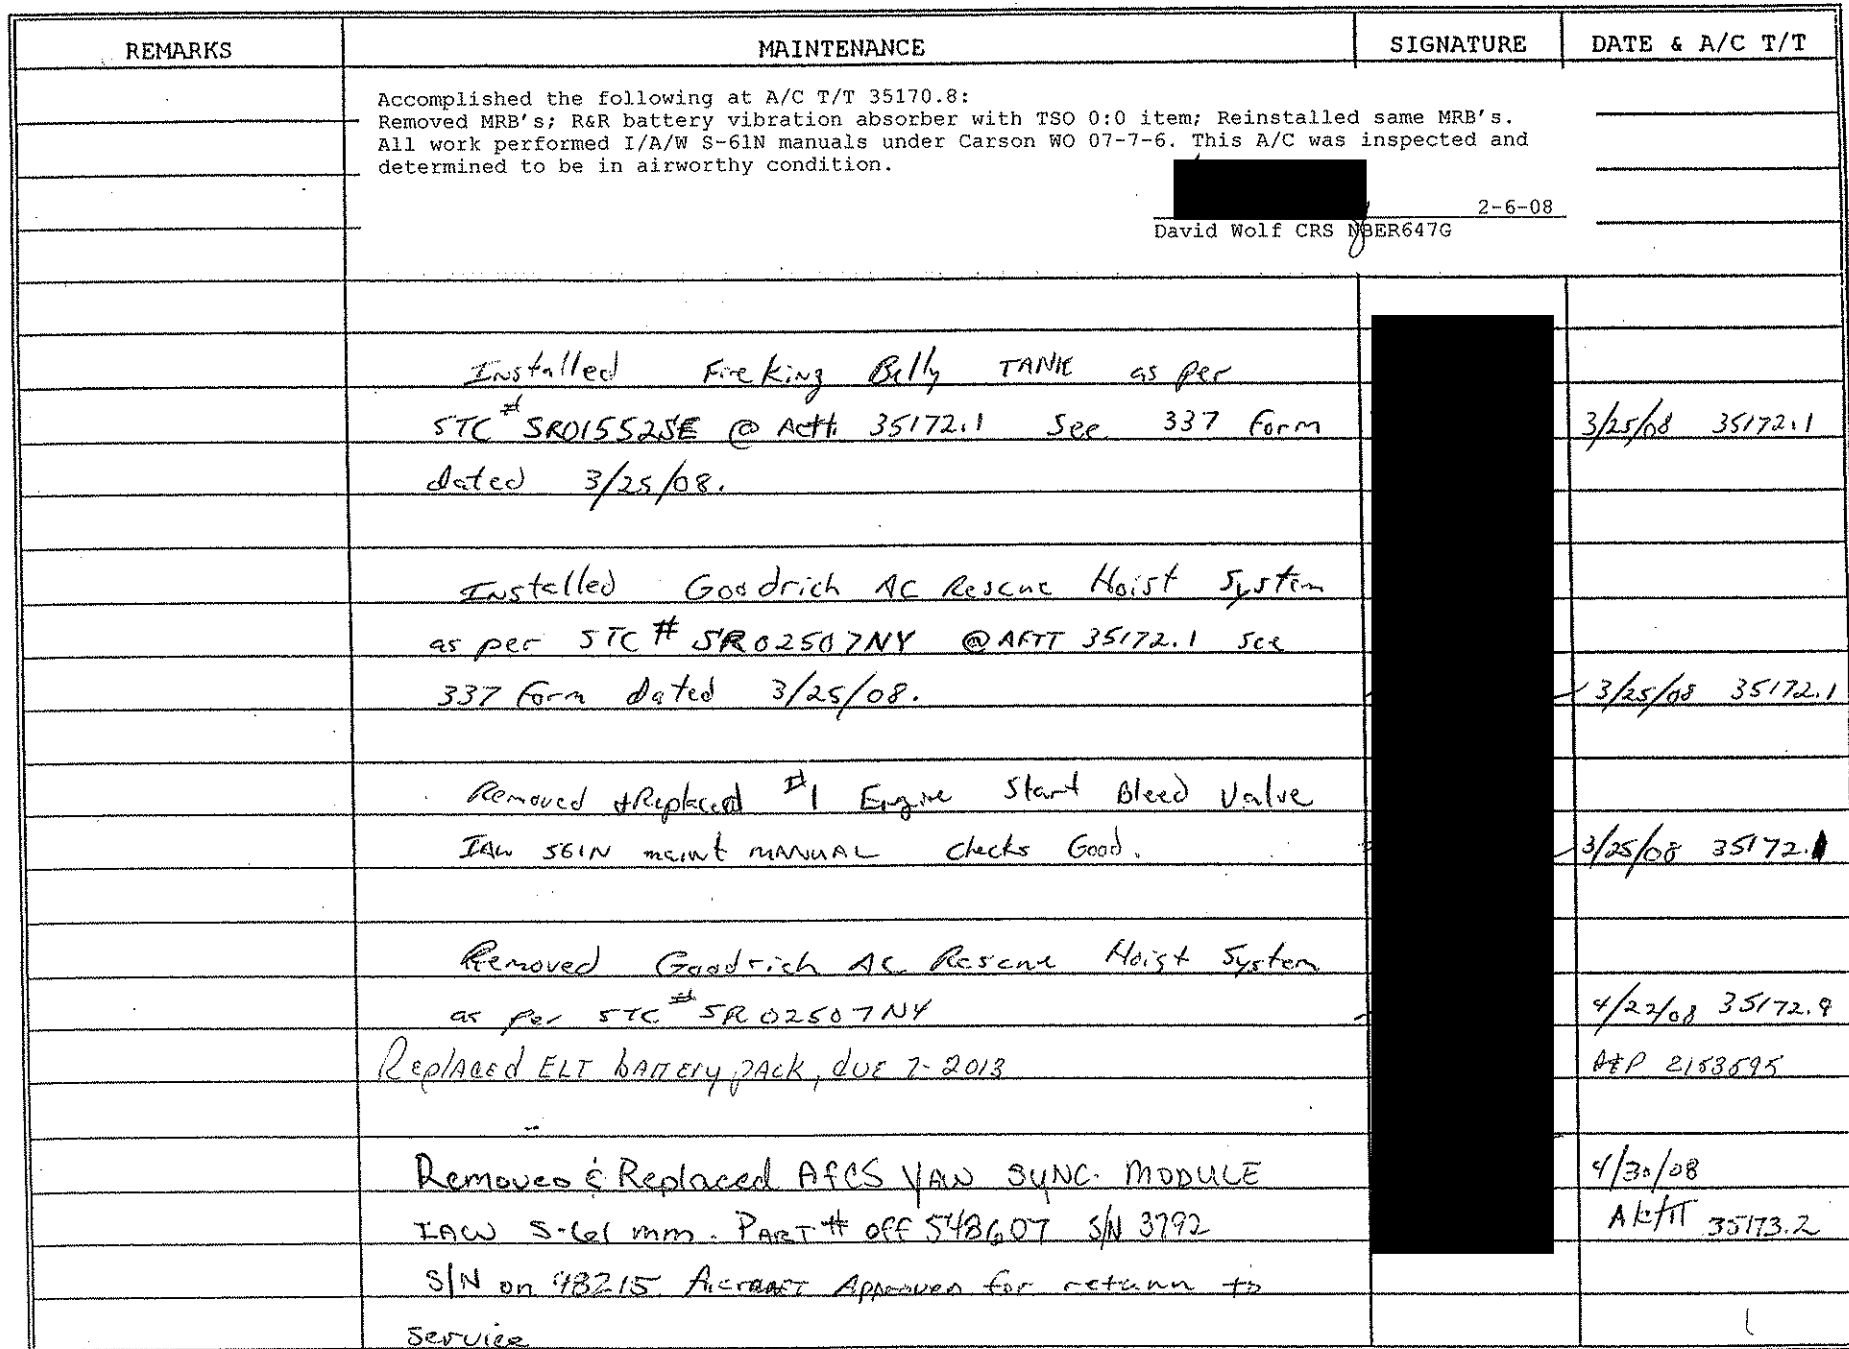 REMARKS MAINTENANCE SIGNATURE DATE & A/C T/T
Accomplished the following at A/C T/T 35170.8:
Removed MRB's; R&R battery vibration absorber with TSO 0:0 item; Reinstalled same MRB's.
All work performed I/A/W S-61N manuals under Carson WO 07-7-6. This A/C was inspected and
determined to be in airworthy condition.
2-6-08
David Wolf CRS NBER647G
Installed Fire King Belly TANK as per
STC # SR01552SE @ Actt 35172.1 See 337 form 3/25/08 35172.1
dated 3/25/08.
Installed Goodrich AC Rescue Hoist System
as per STC # SR02507NY @ AFTT 35172.1 See
337 form dated 3/25/08. 3/25/08 35172.1
Removed & Replaced #1 Engine Start Bleed Valve
IAW S61N maint MANUAL checks Good. 3/25/08 35172.1
Removed Goodrich AC Rescue Hoist System
as per STC # SR02507NY 4/22/08 35172.9
Replaced ELT bATTEry pACk, duE 7-2013 A&P
Removed & Replaced AFCS YAW SYNC. MODULE 4/30/08
IAW S-61 mm. PART # off 548607 S/N 3792 35173.2
S/N on 48215. Aircraft Approved for return to
service